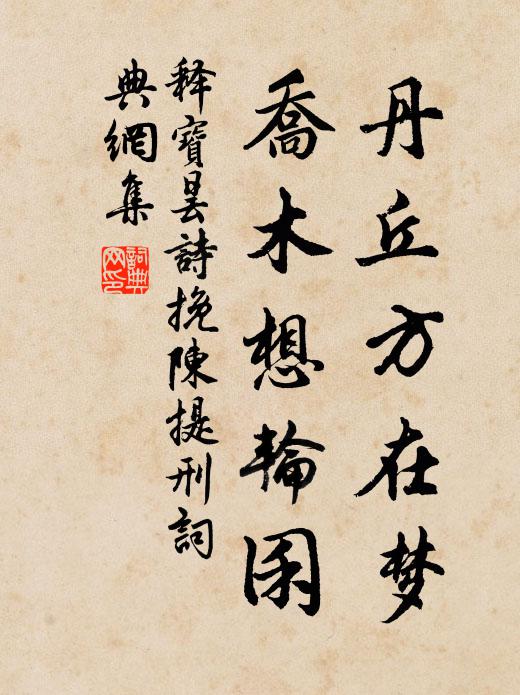 丹丘方在梦
喬木想輪囷
释寶昙詩挽陳提刑詞
典網集
詞典
网印